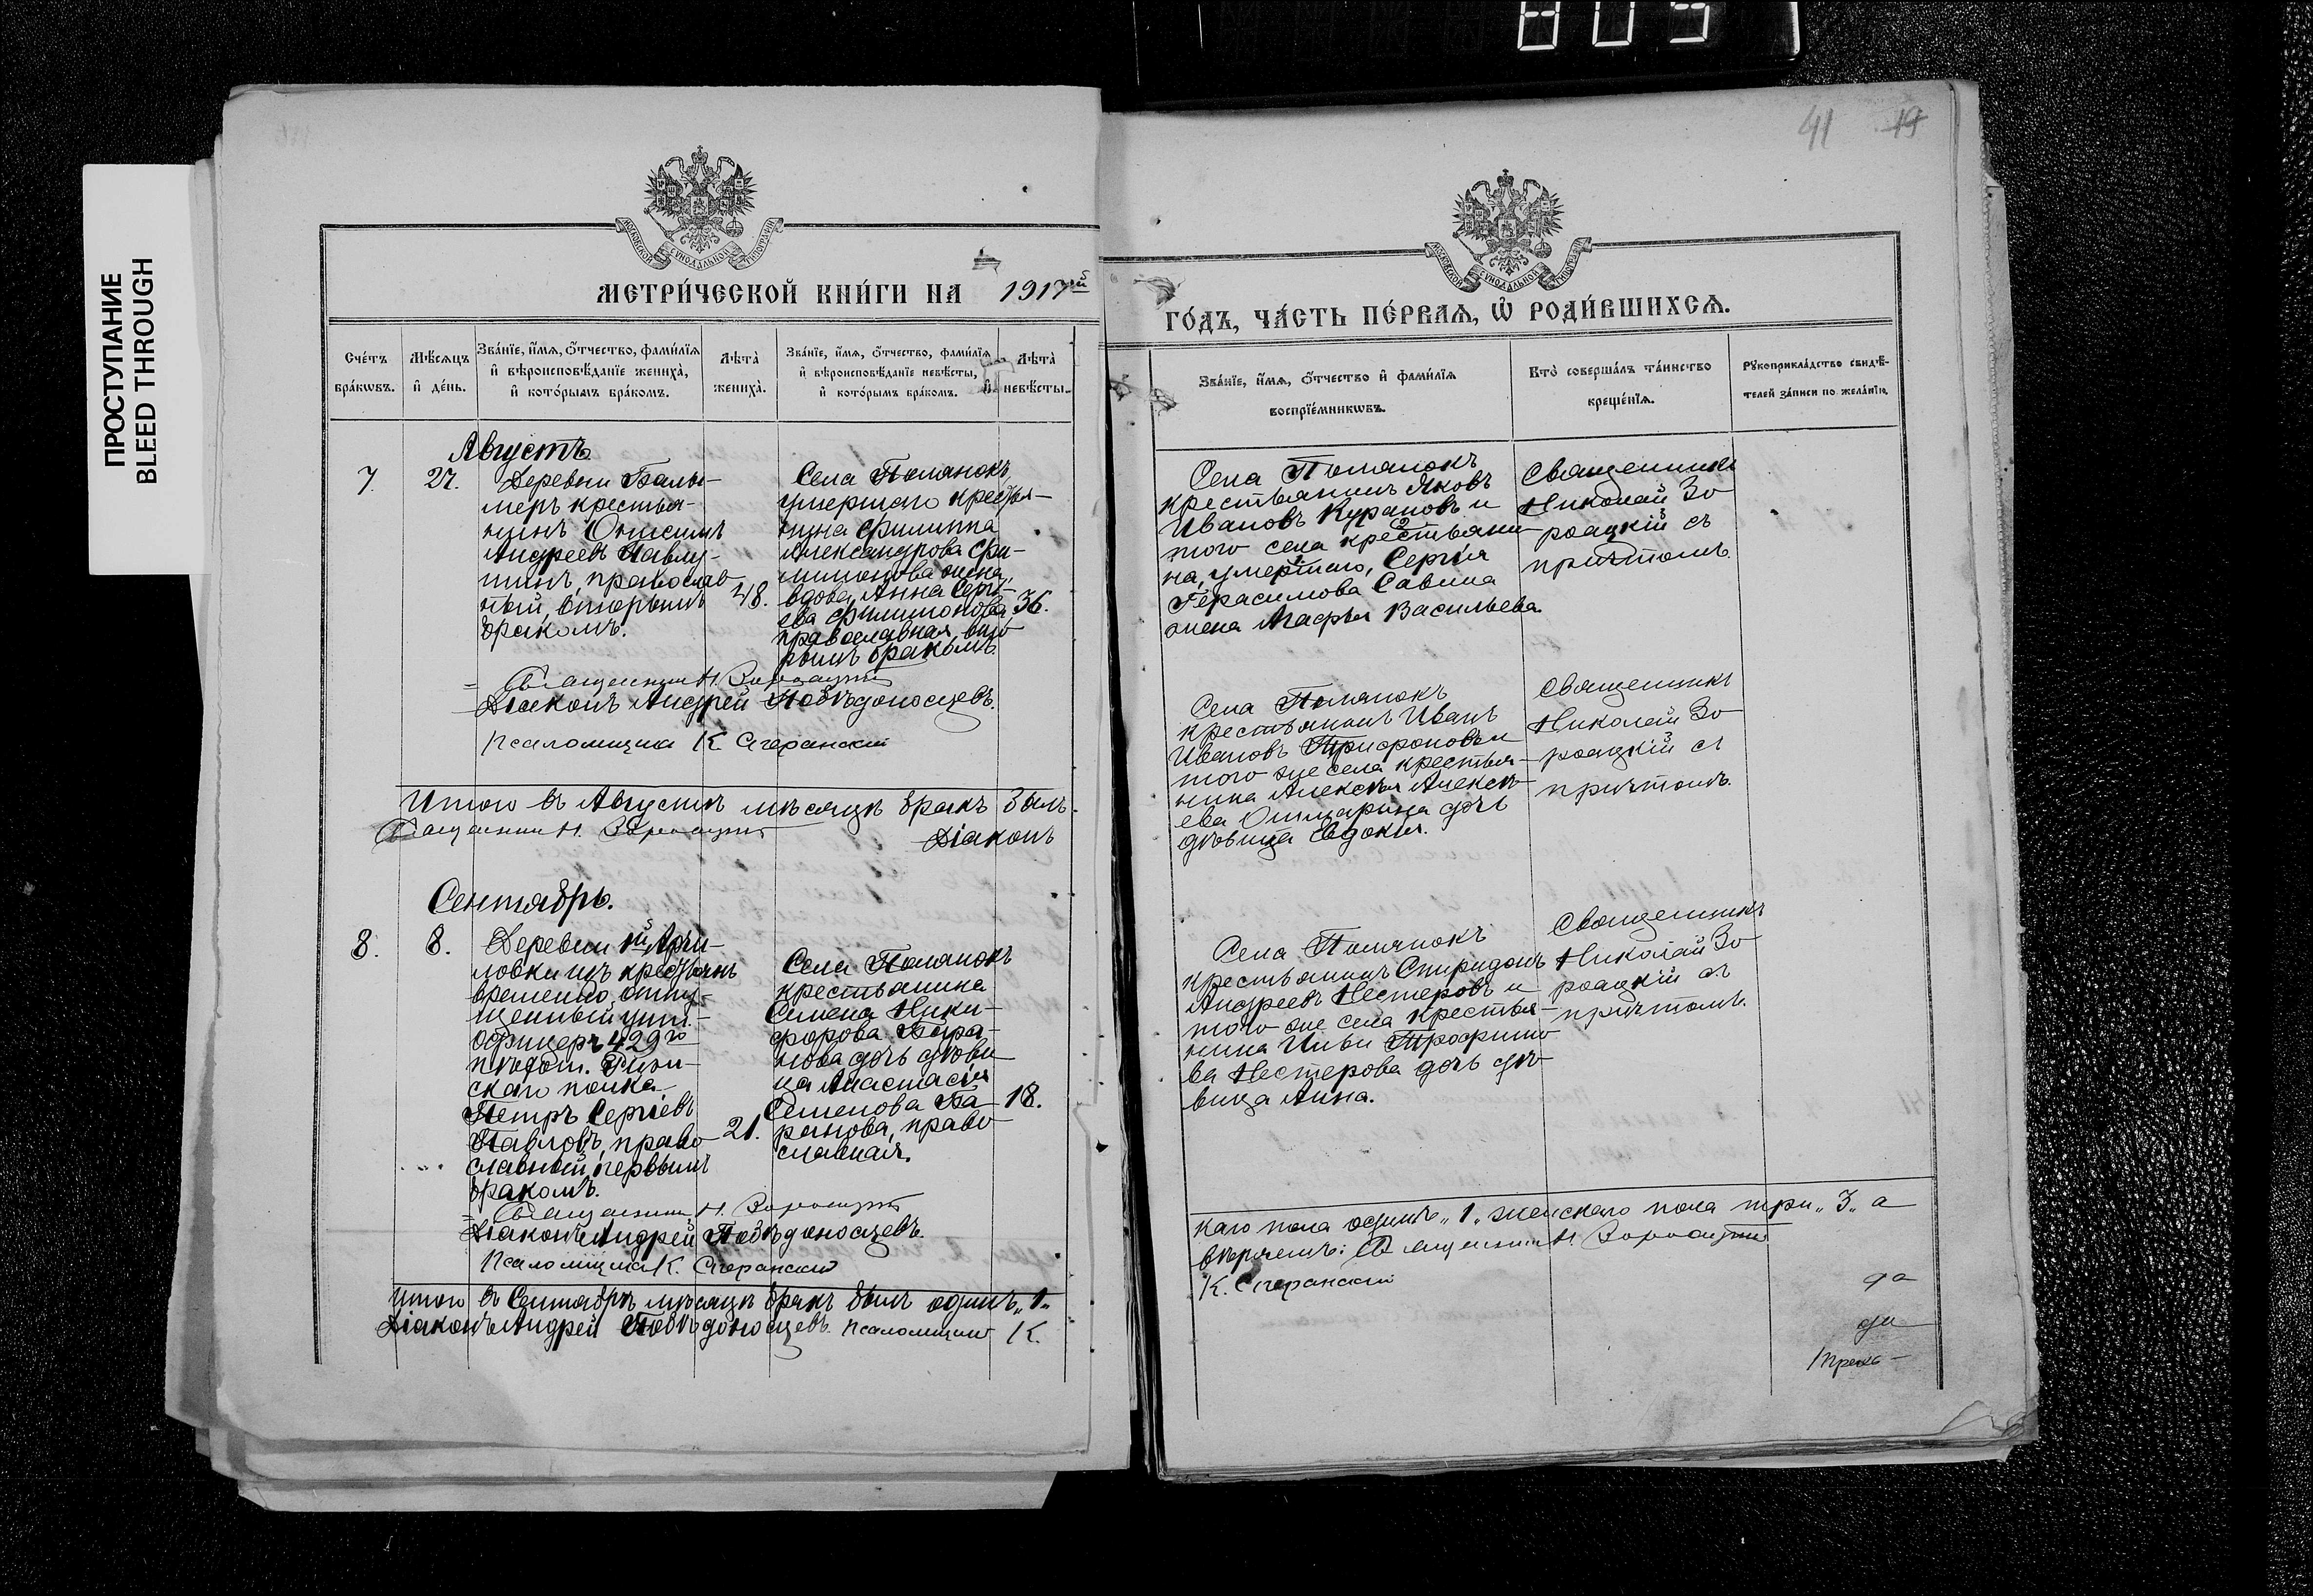 805
ПРОСТУПАНИЕ
BLEED THROUGH
41 19
МОСКОВСКОЙ СѴНОДАЛЬНОЙ ТИПОГРАФІИ
МЕТРИ́ЧЕСКОЙ КНИ́ГИ НА 1917й
Сче́тъ бра́кѡвъ.
Мѣ́сѧцъ и҆ де́нь.
Зва́нїе, и҆́мѧ, ѻ҆́тчество, фами́лїѧ и҆ вѣроисповѣ́данїе жениха̀, и҆ кото́рымъ бра́комъ.
Лѣта̀ жениха̀.
Зва́нїе, и҆́мѧ, ѻ҆́тчество, фами́лїѧ и҆ вѣроисповѣ́данїе невѣ́сты, и҆ кото́рымъ бра́комъ.
Лѣта̀ невѣ́сты.
Августъ
7. 27.
Деревни Балы-
меръ крестья-
нинъ Онисимъ
Андреевъ Павлу-
нинъ, православ-
ный, вторымъ
бракомъ.
48.
Села Полянокъ
умершаго крестья-
нина Филиппа
Александрова Фи-
лимонова жена,
вдова, Анна Серге-
ева Филимонова
православная, вто-
рымъ бракомъ
36.
Священникъ Н.
Діаконъ Андрей Побѣдоносцевъ.
Псаломщикъ К.
Итого въ Августѣ мѣсяцѣ бракъ былъ
Священникъ Н.
Діаконъ
Сентябрь.
8. 8.
Деревни 1й
ловки изъ крестьянъ
временно отпу-
щенный унт.-
офицеръ 429го
пѣхот.
скаго полка
Петръ Сергіевъ
Павловъ, право-
славный, первымъ
бракомъ.
21.
Села Полянокъ
крестьянина
Семена Ники-
форова Бара-
нова дочь дѣви-
ца Анастасія
Семенова Ба-
ранова, право-
славная.
18.
Священникъ Н.
Діаконъ Андрей Побѣдоносцевъ.
Псаломщикъ К.
Итого въ Сентябрѣ мѣсяцѣ бракъ былъ одинъ „1„
Діаконъ Андрей Побѣдоносцевъ. Псаломщикъ К.
МОСКОВСКОЙ СѴНОДАЛЬНОЙ ТИПОГРАФІИ
ГО́ДЪ, ЧА́СТЬ ПЕ́РВАѦ, Ѡ҆ РОДИ́ВШИХСѦ.
Зва́нїе, и҆́мѧ, ѻ҆́тчество и҆ фами́лїѧ воспрїе́мникѡвъ.
Кто̀ соверша́лъ та́инство креще́нїѧ.
Рꙋкоприкла́дство свидѣ́телей за́писи по жела́нїю.
Села Полянокъ
крестьянинъ Яковъ
Ивановъ Курановъ и
того села крестьяни-
на, умершаго, Сергія
Герасимова Савина
жена Агафья Васильева.
Священникъ
Николай Зо-
роацкій съ
причтомъ.
Села Полянокъ
крестьянинъ Иванъ
Ивановъ Трифоновъ и
того же села крестья-
нина Алексѣя Алексѣ-
ева дочь
дѣвица Евдокія.
Священникъ
Николай Зо-
роацкій съ
причтомъ.
Села Полянокъ
крестьянинъ Спиридонъ
Андреевъ Нестеровъ и
того же села крестья-
нина Трофимо-
ва Нестерова дочь дѣ-
вица Анна.
Священникъ
Николай Зо-
роацкій съ
причтомъ.
каго пола одинъ „1„ женскаго пола три „3„ а
Священникъ Н.
К.
да
да